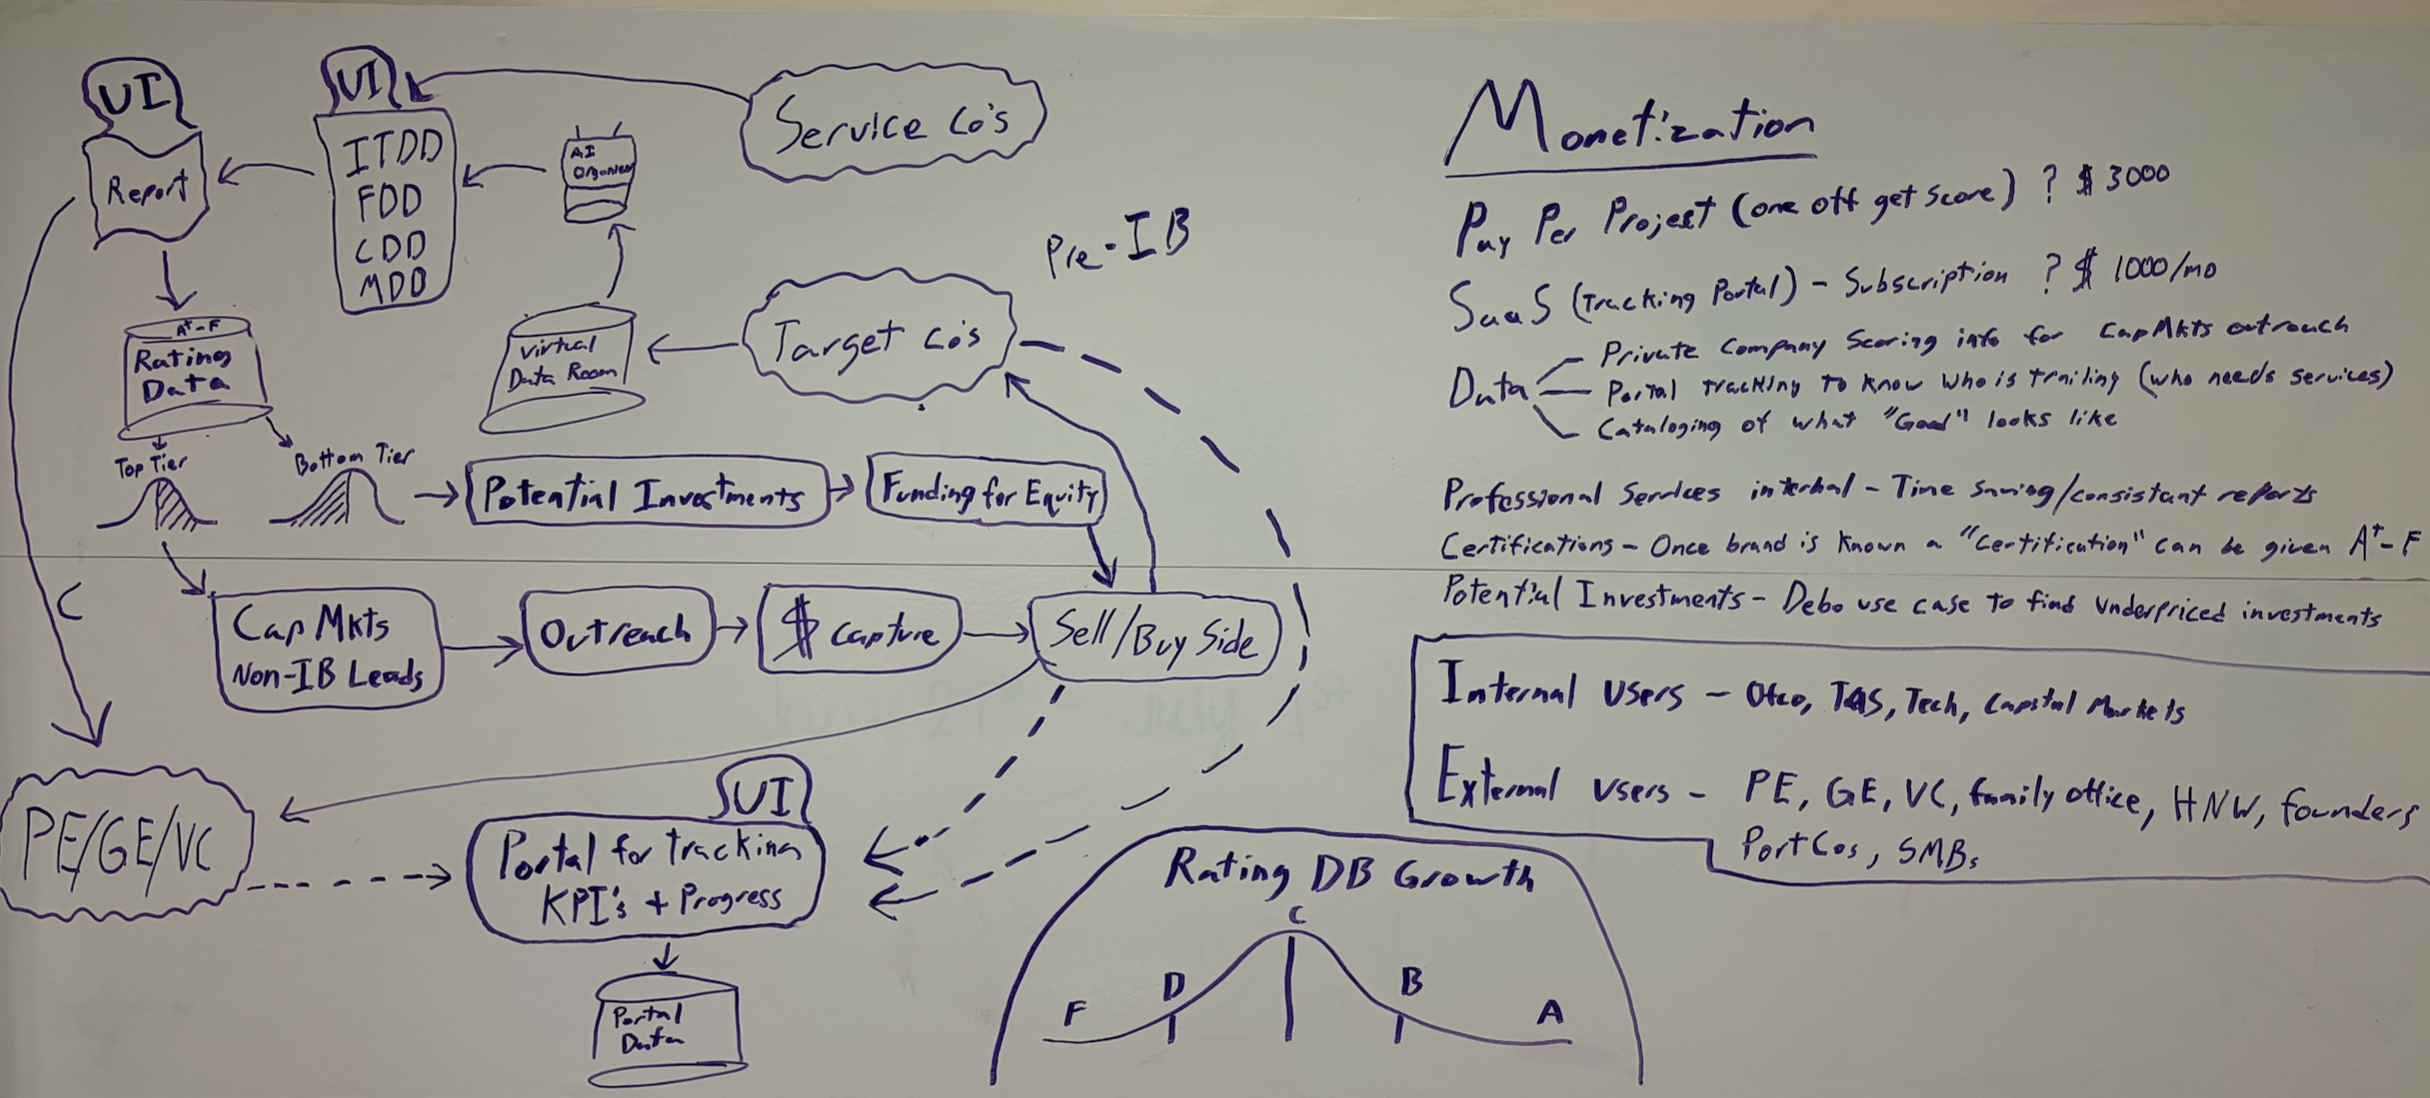 UI
Report
UI
ITDD
FDD
CDD
MDD
AI
Service Co's
Pre-IB
Target Co's
Virtual
Data Room
A+-F
Rating
Data
Top Tier
Bottom Tier
Potential Investments
Funding for Equity
CapMkts
Non-IB Leads
Outreach
$ Capture
Sell/Buy Side
PE/GE/VC
UI
Portal for Tracking
KPI's + Progress
Portal
Data
Rating DB Growth
F
D
C
B
A
Monetization
Pay Per Project (one off get score) ? $ 3000
SaaS (Tracking Portal) - Subscription ? $ 1000/mo
Data
Private Company Scoring info for CapMkts outreach
Portal tracking to know who is trailing (who needs services)
Cataloging of what "Good" looks like
Professional Services internal - Time saving/consistant reports
Certifications - Once brand is known a "Certification" can be given A+-F
Potential Investments - Debo use case to find underpriced investments
Internal Users - TAS, Tech, Capital Markets
External Users - PE, GE, VC, family office, HNW, founders
PortCos, SMBs